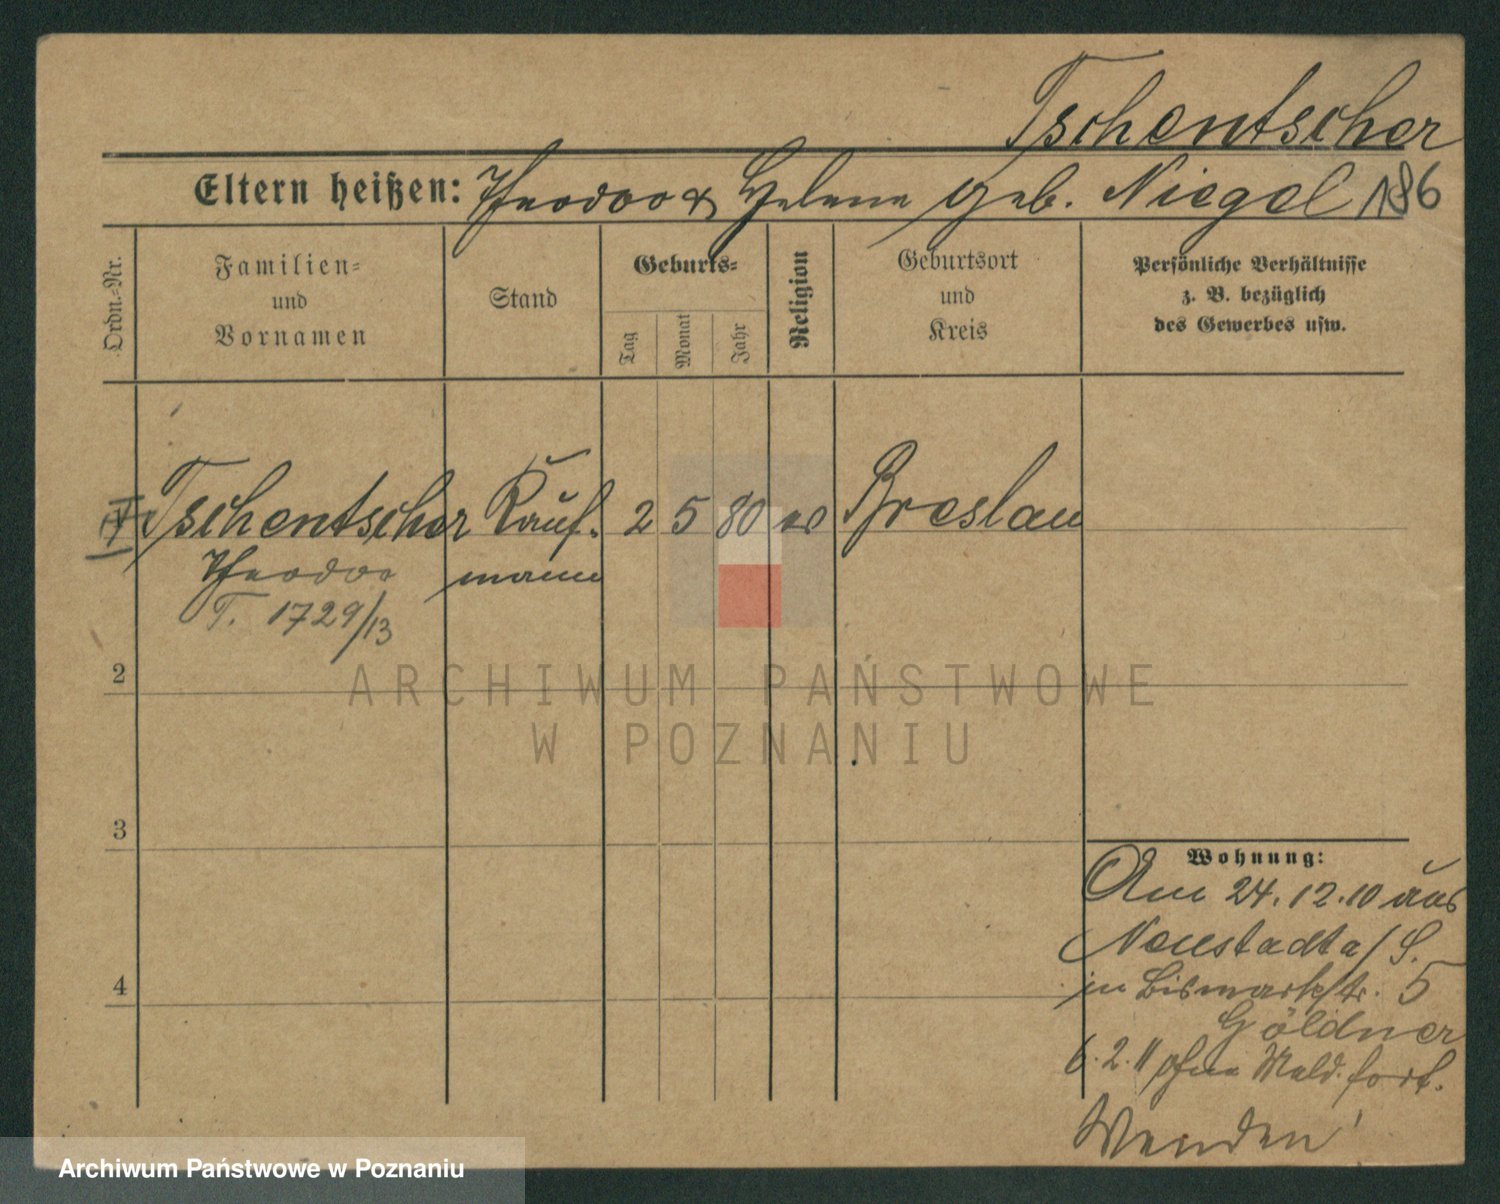 Tschentscher
Eltern heißen: Theodor & Helene geb. Niegel 186
Ordn.-Nr.
Familien-
und
Vornamen
Stand
Geburts-
Tag
Monat
Jahr
Religion
Geburtsort
und
Kreis
Persönliche Verhältnisse
z. B. bezüglich
des Gewerbes usw.
Tschentscher Kauf- 2 5 80 Breslau
Theodor mann
T. 1729/13
2
3
4
Wohnung:
Am 24.12.10 aus
Neustadt a/S.
in Bismarckstr. 5
Göldner
6.2.11 ohne Meld. fort.
Wenden!
ARCHIWUM PAŃSTWOWE
W POZNANIU
Archiwum Państwowe w Poznaniu